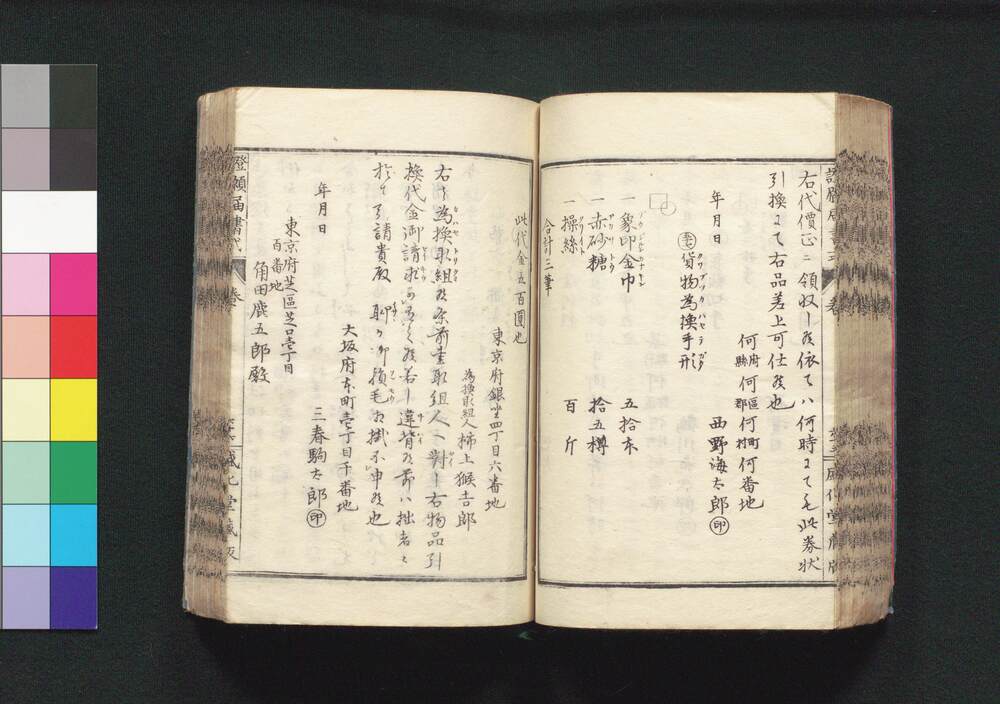 右代價正ニ領収し候依てハ何時にても此券状
引換にて右品差上可仕候也
何府縣何區郡何町村何番地
年月日 西野海太郎 印
貨物為換手形
クワブツカハセテガタ
一象印金巾 五拾束
一赤砂糖 拾五樽
一操絲 百斤
合計三筆
此代金五百圓也
東京府銀坐四丁目六番地
為換取組人 柿上猴吉郎
右ハ為換取組候条前書取組人ヘ對し右物品引
換代金御請求可有之候若し違背候節ハ拙者に
於て引請貴殿ヘ聊カ御損毛相掛不申候也
大坂府本町壱丁目千番地
年月日 三春駒太郎 印
東京府芝區芝口壱丁目
百番地
角田鹿五郎殿
證願届書式 巻
盛化堂蔵版